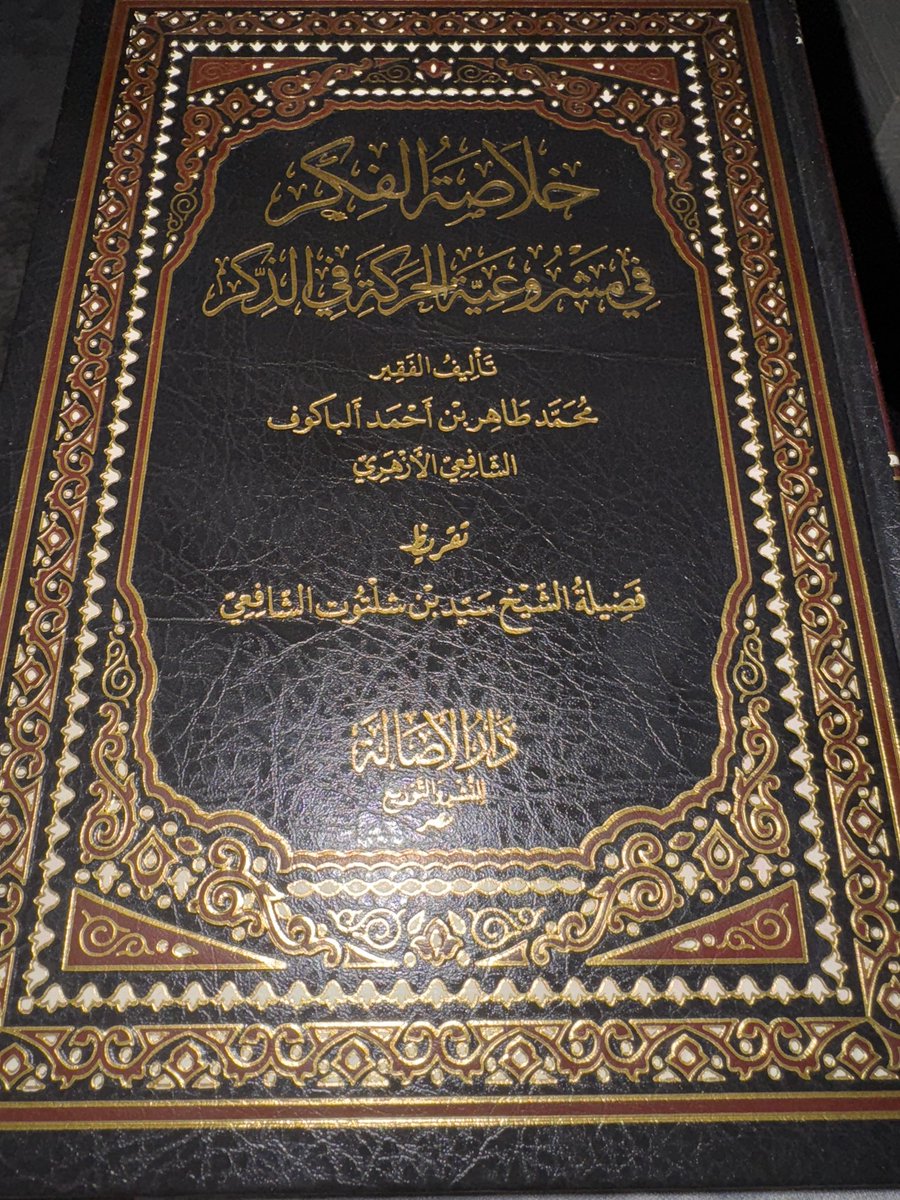 خُلَاصَةُ الفِكْرِ
فِي مَشْرُوعِيَّةِ الحَرَكَةِ فِي الذِّكْرِ
تَأْلِيفُ الفَقِيرِ
مُحَمَّد طَاهِر بْن أَحْمَد ألباكوف
الشَّافِعِيّ الأَزْهَرِيّ
تقريظ
فَضِيلَةُ الشَّيْخِ سَيِّد بْن شلْتُوت الشَّافِعِيّ
دَارُ الأَصَالَة
للنشر والتوزيع
مصر